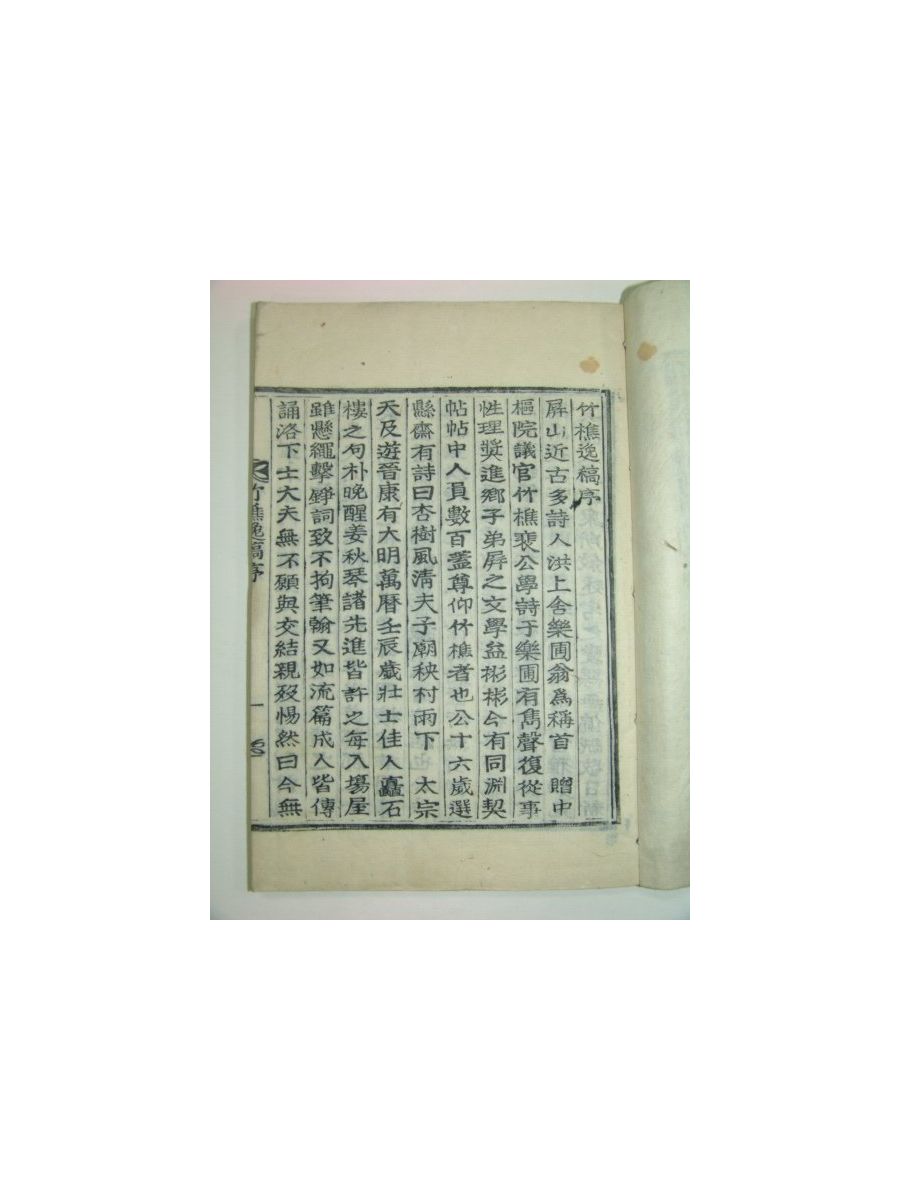 竹樵逸稿序
屛山近古多詩人洪上舍樂圃翁爲稱首 贈中
樞院議官竹樵裴公學詩于樂圃有雋聲復從事
性理奬進鄕子弟屛之文學益彬彬今有同淵契
帖帖中人員數百蓋尊仰竹樵者也公十六歲選
縣齋有詩曰杏樹風淸夫子廟秧村雨下 太宗
天及遊晉康有大明萬曆壬辰歲壯士佳人矗石
樓之句朴晩醒姜秋琴諸先進皆許之每入塲屋
雖懸繩擊錚詞致不拘筆翰又如流篇成人皆傳
誦洛下士大夫無不願與交結親歿惕然曰今無
竹樵逸稿序
一